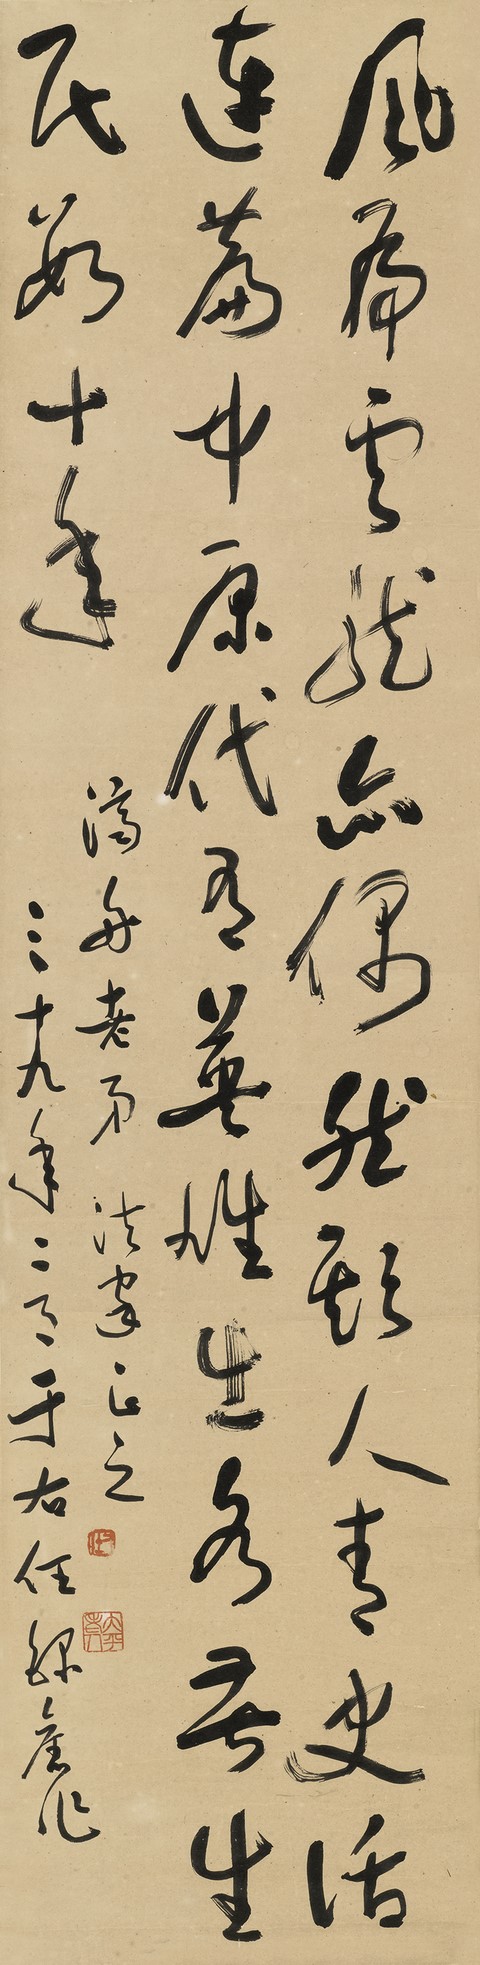 風虎雲龍亦偶然欺人青史話
連篇中原代有英雄出各苦生
民數十年
舟老弟 法家正之
三十九年二月于右任錄舊作